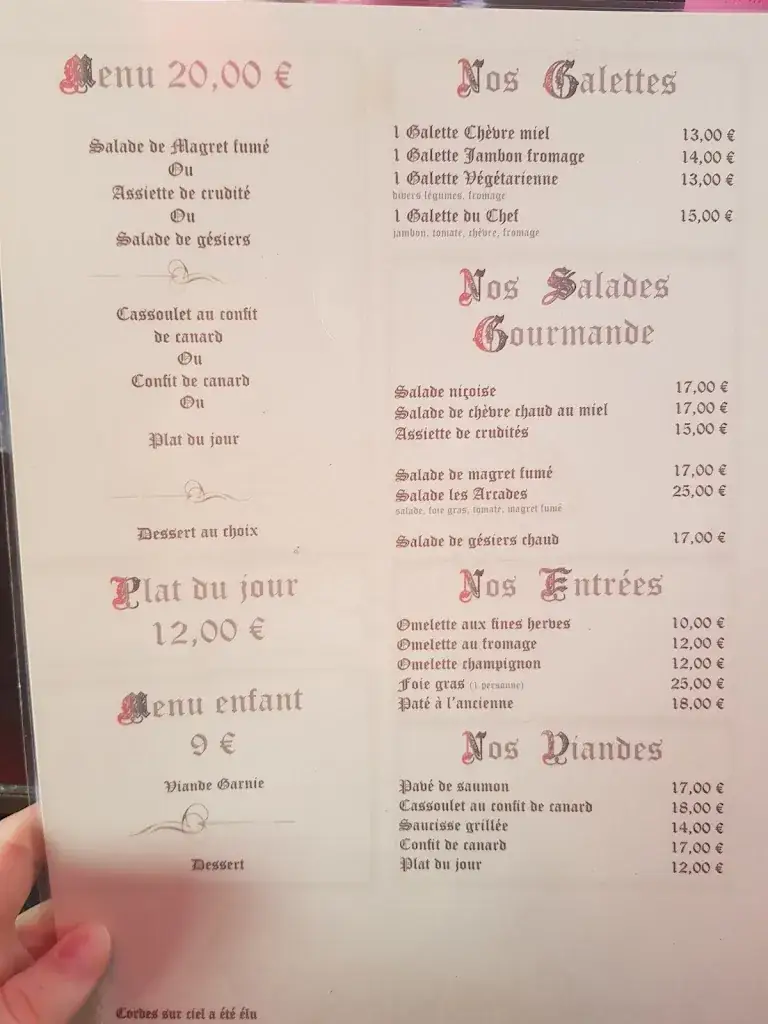 Menu 20,00 €
Salade de Magret fumé
Ou
Assiette de crudité
Ou
Salade de gésiers
Cassoulet au confit
de canard
Ou
Confit de canard
Ou
Plat du jour
Dessert au choix
Plat du jour
12,00 €
Menu enfant
9 €
Viande Garnie
Dessert
Cordes sur ciel a été élu
Nos Galettes
1 Galette Chèvre miel 13,00 €
1 Galette Jambon fromage 14,00 €
1 Galette Végétarienne 13,00 €
divers légumes, fromage
1 Galette du Chef 15,00 €
jambon, tomate, chèvre, fromage
Nos Salades
Gourmande
Salade niçoise 17,00 €
Salade de chèvre chaud au miel 17,00 €
Assiette de crudités 15,00 €
Salade de magret fumé 17,00 €
Salade les Arcades 25,00 €
salade, foie gras, tomate, magret fumé
Salade de gésiers chaud 17,00 €
Nos Entrées
Omelette aux fines herbes 10,00 €
Omelette au fromage 12,00 €
Omelette champignon 12,00 €
Foie gras (1 personne) 25,00 €
Paté à l'ancienne 18,00 €
Nos Viandes
Pavé de saumon 17,00 €
Cassoulet au confit de canard 18,00 €
Saucisse grillée 14,00 €
Confit de canard 17,00 €
Plat du jour 12,00 €